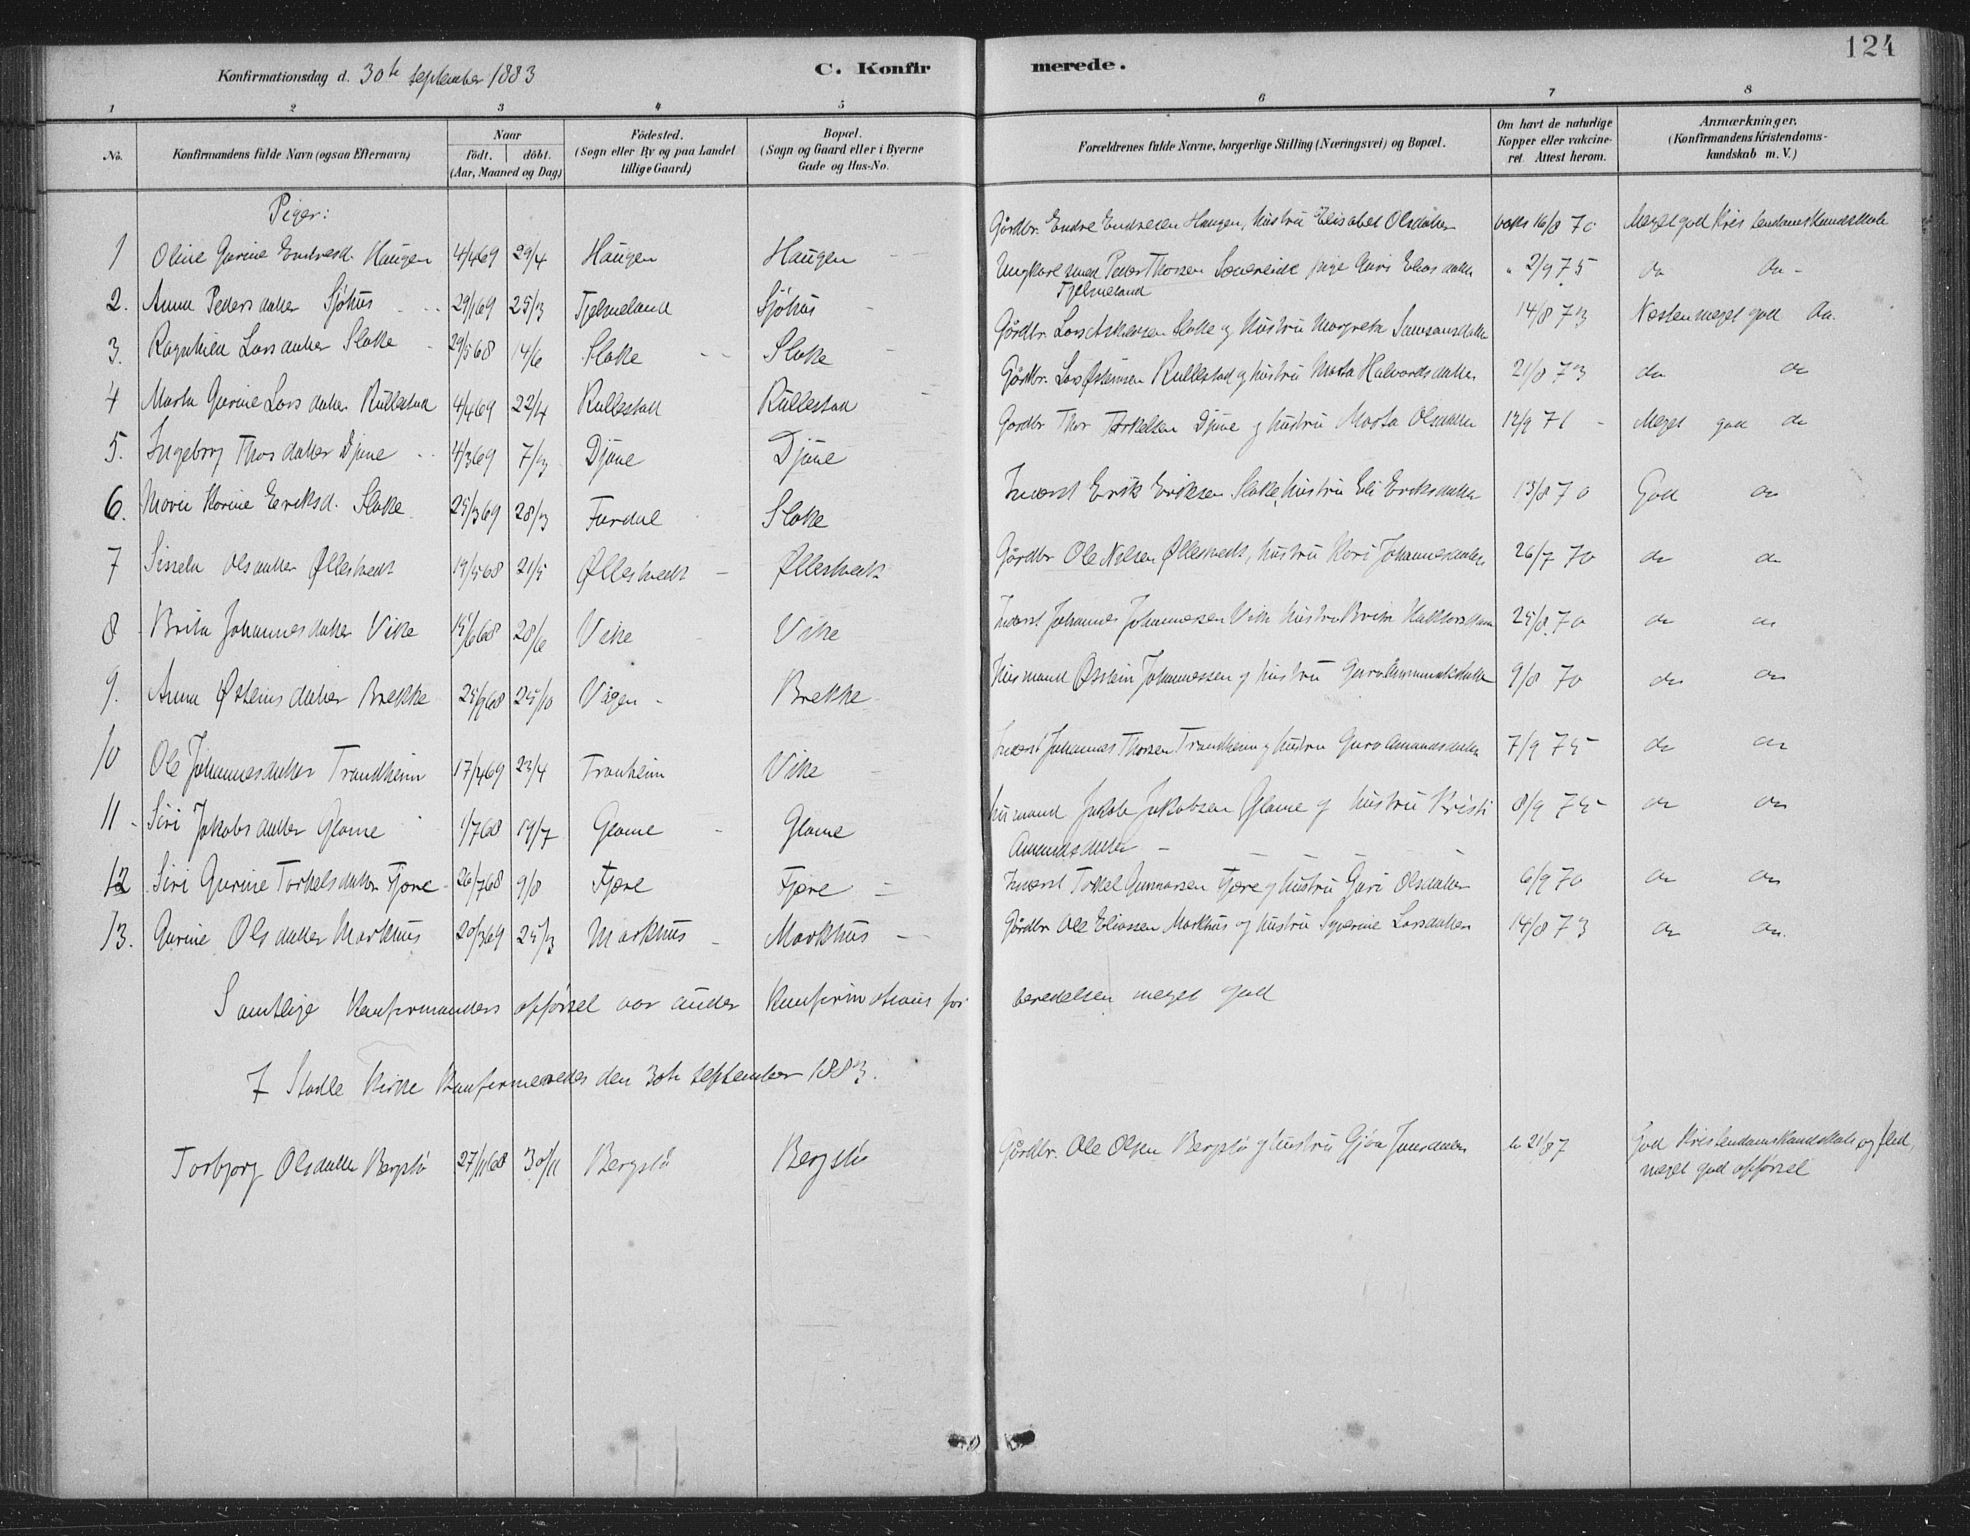 124
Konfirmationsdag d. 30te september 1883 C. Konfirmerede.
1 2 3 4 5 6 7 8
No. Konfirmandens fulde Navn (ogsaa Efternavn) Naar födt. döbt. (Aar, Maaned og Dag) Födested. (Sogn eller By og paa Landet tillige Gaard) Bopæl. (Sogn og Gaard eller i Byerne Gade og Hus-No. Forældrenes fulde Navne, borgerlige Stilling (Næringsvei) og Bopæl. Om havt de naturlige Kopper eller vakcineret. Attest herom. Anmærkninger. (Konfirmandens Kristendomskundskab m. V.)
Piger:
1 Oline Gurine Endresd. Haugen 4/4 69 29/4 Haugen Haugen Gårdbr. Endre Endresen Haugen, hustru Elisabet Olsdatter vaks 16/8 70 Meget god Kristendomskundskab
2. Anna Pedersdatter Sjöhus 29/1 69 25/3 Fjelmeland Sjöhus Ungkarl Peder Thorsen pige Guri Eliasdatter Fjelmeland " 2/9 75 do do
3. Ragnhild Larsdatter Slake 29/5 68 14/6 Slake Slake Gårdbr. Lars Slake og hustru Margreta Samsonsdatter 14/8 73 Næsten meget god do
4 Marta Gurine Larsdatter Rullestad 4/4 69 22/4 Rullestad Rullestad Gårdbr. Lars Østensen Rullestad og hustru Marta Halvardsdatter 21/8 73 do do
5. Ingeborg Thorsdatter Djune 4/3 69 7/3 Djune Djune Gårdbr Thor Torkelsen Djune og hustru Marta Olsdatter 12/9 71 Meget god do
6. Mari Karine Eeriksd. Slake 25/3 69 28/3 Furdal Slake Inderst Erik Eriksen Slake, hustru Eli Eriksdatter 13/8 70 God do
7 Sinela Olsdatter Øllestvedt 19/5 68 21/5 Øllestvedt Øllestvedt Gårdbr Ole Nilsen Øllestvedt, hustru Kari Johannesdatter 26/7 70 do do
8 Brita Johannesdatter Vike 15/6 68 28/6 Vike Vike Inderst Johannes Johannessen Vike hustru Brita 25/8 70 do do
9. Anna Østeinsdatter Brekke 25/9 68 25/10 Vågen Brekke Husmand Østein Johannessen og hustru Guro Amundsdatter 9/8 70 do do
10 Ole Johannesdatter Trandheim 17/4 69 23/4 Tranheim Vike Inderst Johannes Thorsen Trandheim og hustru Guro Amundsdatter 7/9 75 do do
11 Siri Jakobsdatter Glame 1/7 68 19/7 Glame Glame husmand Jakob Jakobsen Glame og hustru Kristi Amundsdatter 8/9 75 do do
12 Siri Gurine Torkelsdatter Fjære 26/7 68 9/8 Fjære Fjære Inderst Torkel Gunnarsen Fjære og hustru Guri Olsdatter 6/9 70 do do
13. Gurine Olsdatter Markhus 20/3 69 25/3 Markhus Markhus Gårdbr Ole Eliassen Markhus og hustru Severine Larsdatter 14/8 73 do do
Samtlige Konfirmanders opförsel var under Konfirmationsforberedelsen meget god
I Stadle Kirke Konfirmeredes den 30te september 1883.
Torbjorg Olsdatter Bergstö 27/11 68 30/11 Bergstö Bergstö Gårdbr. Ole Olsen Bergstö og hustru Gjøa 21/8 7 God Kristendomskundskab og flid, meget god opförsel